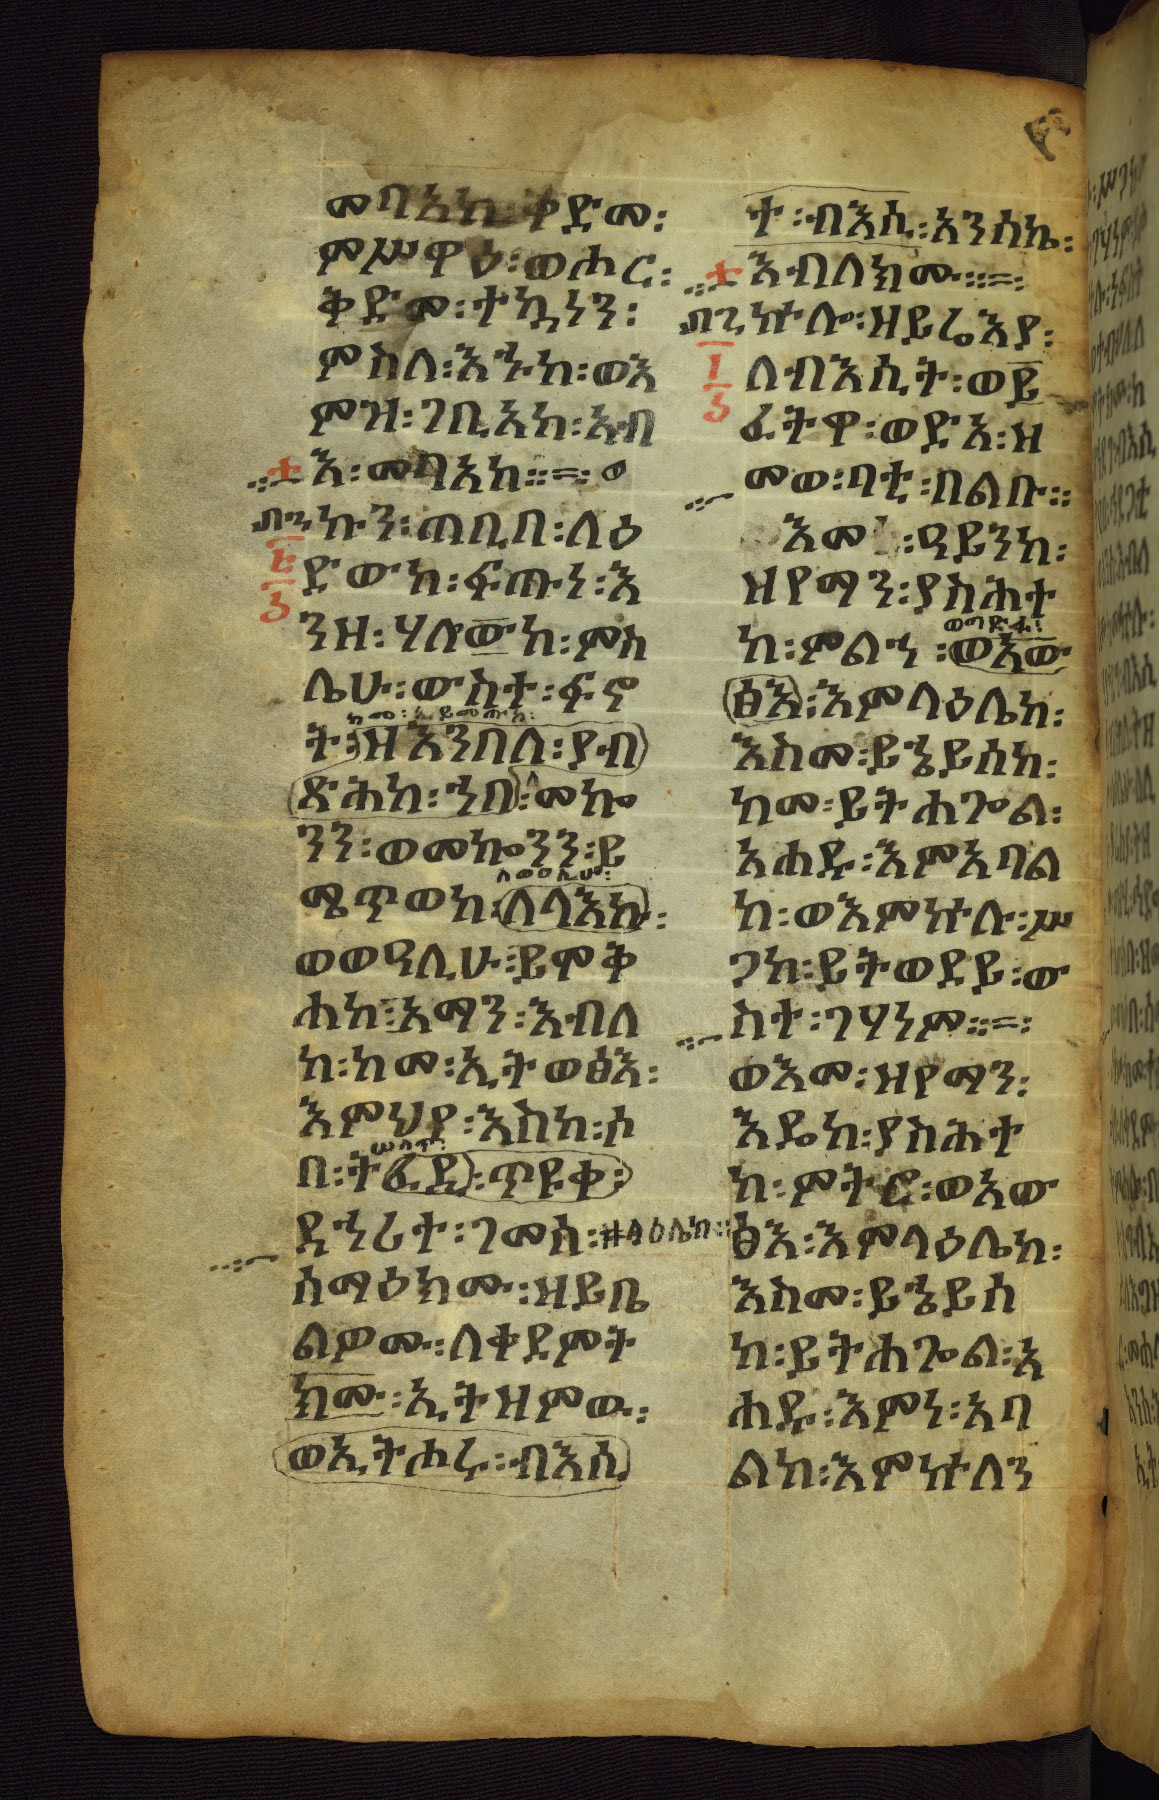 መባአከ፡ቅድመ፡
ምሥዋዕ፡ወሐር፡
ቅድመ፡ተኳነን፡
ምስለ፡እኁከ፡ወእ
ምዝ፡ገቢአከ፡አብ
እ፡መባአከ፡፡=፡
ኩን፡ጠቢበ፡ለዕ
ድውከ፡ፍጡነ፡እ
ንዘ፡ሃሎውከ፡ምስ
ሌሁ፡ውስተ፡ፍኖ
ከመ፡ኢይመጡከ፡
ት፡ዘእንበለ፡ያብ
ጽሕከ፡ኀበ፡መኰ
ንን፡ወመኰንን፡ይ
ለወዐሊሁ፡
ሜጥወከ፡ለላእኩ፡
ወወዓሊሁ፡ይሞቅ
ሐከ፡አማን፡እብለ
ከ፡ከመ፡ኢትወፅእ፡
እምህየ፡እስከ፡ሶ
በ፡ትፈዲ፡ጥዩቀ፡
ዳኅሪተ፡ገመስ፡፡ላዕሌከ፡፡
ሰማዕክሙ፡ዘይቤ
ልዎሙ፡ለቀደምት
ክሙ፡ኢትዘምው፡
ወኢትሑሩ፡ብእሲ
ተ፡ብእሲ፡አንሰኬ፡
እብለክሙ፡፡=፡
ኵሎ፡ዘይሬእያ፡
ለብእሲት፡ወይ
ፈትዋ፡ወድአ፡ዘ
መወ፡ባቲ፡በልቡ፡፡
እመ፡ዓይንከ፡
ዘየማን፡ያስሕተ
ወግድፋ፡
ከ፡ምልኀ፡ወአው
ፅእ፡እምላዕሌከ፡
እስመ፡ይኄይሰከ፡
ከመ፡ይትሐጐል፡
አሐዱ፡እምአባል
ከ፡ወእምኵሉ፡ሥ
ጋከ፡ይትወደይ፡ው
ስተ፡ገሃነም፡፡=፡
ወእመ፡ዘየማን፡
እዴከ፡ያስሕተ
ከ፡ምትር፡ወአው
ፅእ፡እምላዕሌከ፡
እስመ፡ይኄይሰ
ከ፡ይትሐጐል፡አ
ሐዱ፡እምነ፡አባ
ልከ፡እምኵለን